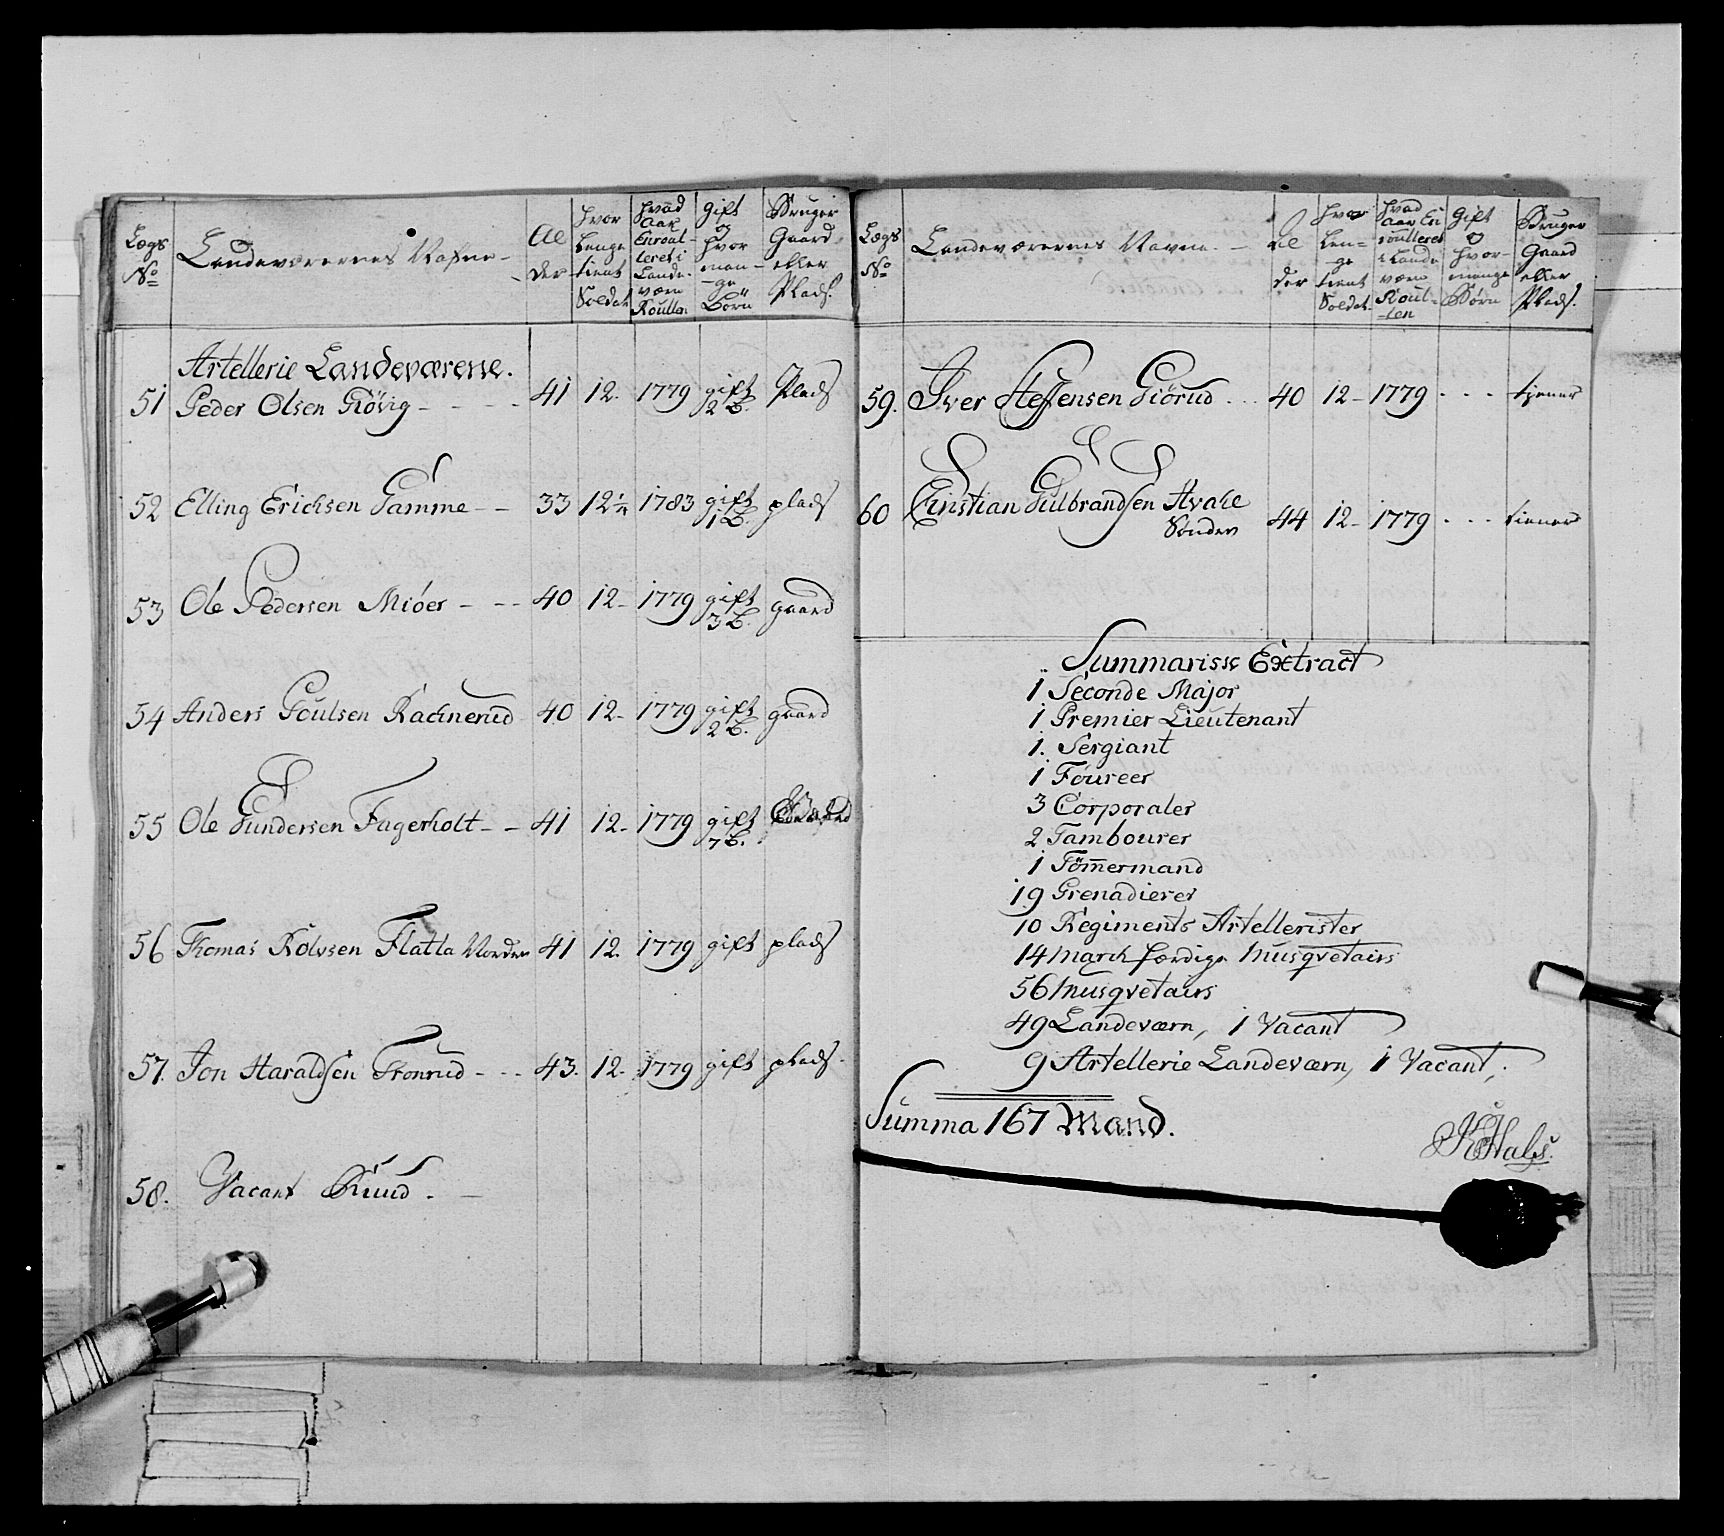 Lægs No
Landeværernes Nafne
Al der
Hvor længe tient Soldat
Hvad Aar Enroulleret i Landeværn Roullen
Gift og hvor mange Börn
Bruger Gaard eller Plads.
Artellerie Landeværene.
51 Peder Olsen Rövig - - - - 41 12. 1779 gift 2 B. Plads
52 Elling Erichsen Gamme - - 33 12¼ 1783 gift 1 B. plads
53 Ole Pedersen Miöer - - - 40 12 - 1779 gift 3 B. gaard
54 Anders Poulsen Rachnerud 40 12 - 1779 gift 2 B. gaard
55 Ole Gundersen Fagerholt - - 41 12 - 1779 gift 7 B.
56 Thomas Rolvsen Flatla Norden 41 12. 1779 gift plads
57. Jon Haraldsen Tronrud - - - 43. 12 - 1779 gift plads.
58. Vacant Ruud. -
Lægs No
Landeværernes Navne. -
Al der
Hvor længe tient Soldat.
Hvad Aar Enroulleret i Landeværn Roullen
Gift og hvor mange Börn
Bruger Gaard eller Plads.
59. Iver Steffensen Giörud . . . 40 12 - 1779 . . . tjener
60 Christian Gulbrandsen Hvale
Sönden 44 12 - 1779 . . . tiener
Summarisse Extract
1 Seconde Major
1 Premier Lieutenant
1. Sergiant
1 Foureer
3 Corporaler
2 Tambourer
1 Töm̅ermand
19 Grenadierer
10 Regiments Artellerister
14 March færdige Musqvetairs
56 Musqvetairs
49 Landeværn, 1 Vacant
9 Artellerie Landeværn, 1 Vacant,
Summa 167 Mand.